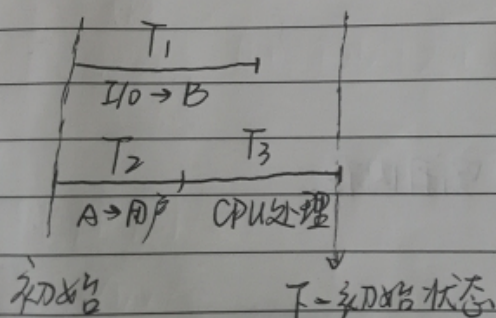 T1
I/O→B
T2 T3
A→用户 CPU处理
初始 下一初始状态